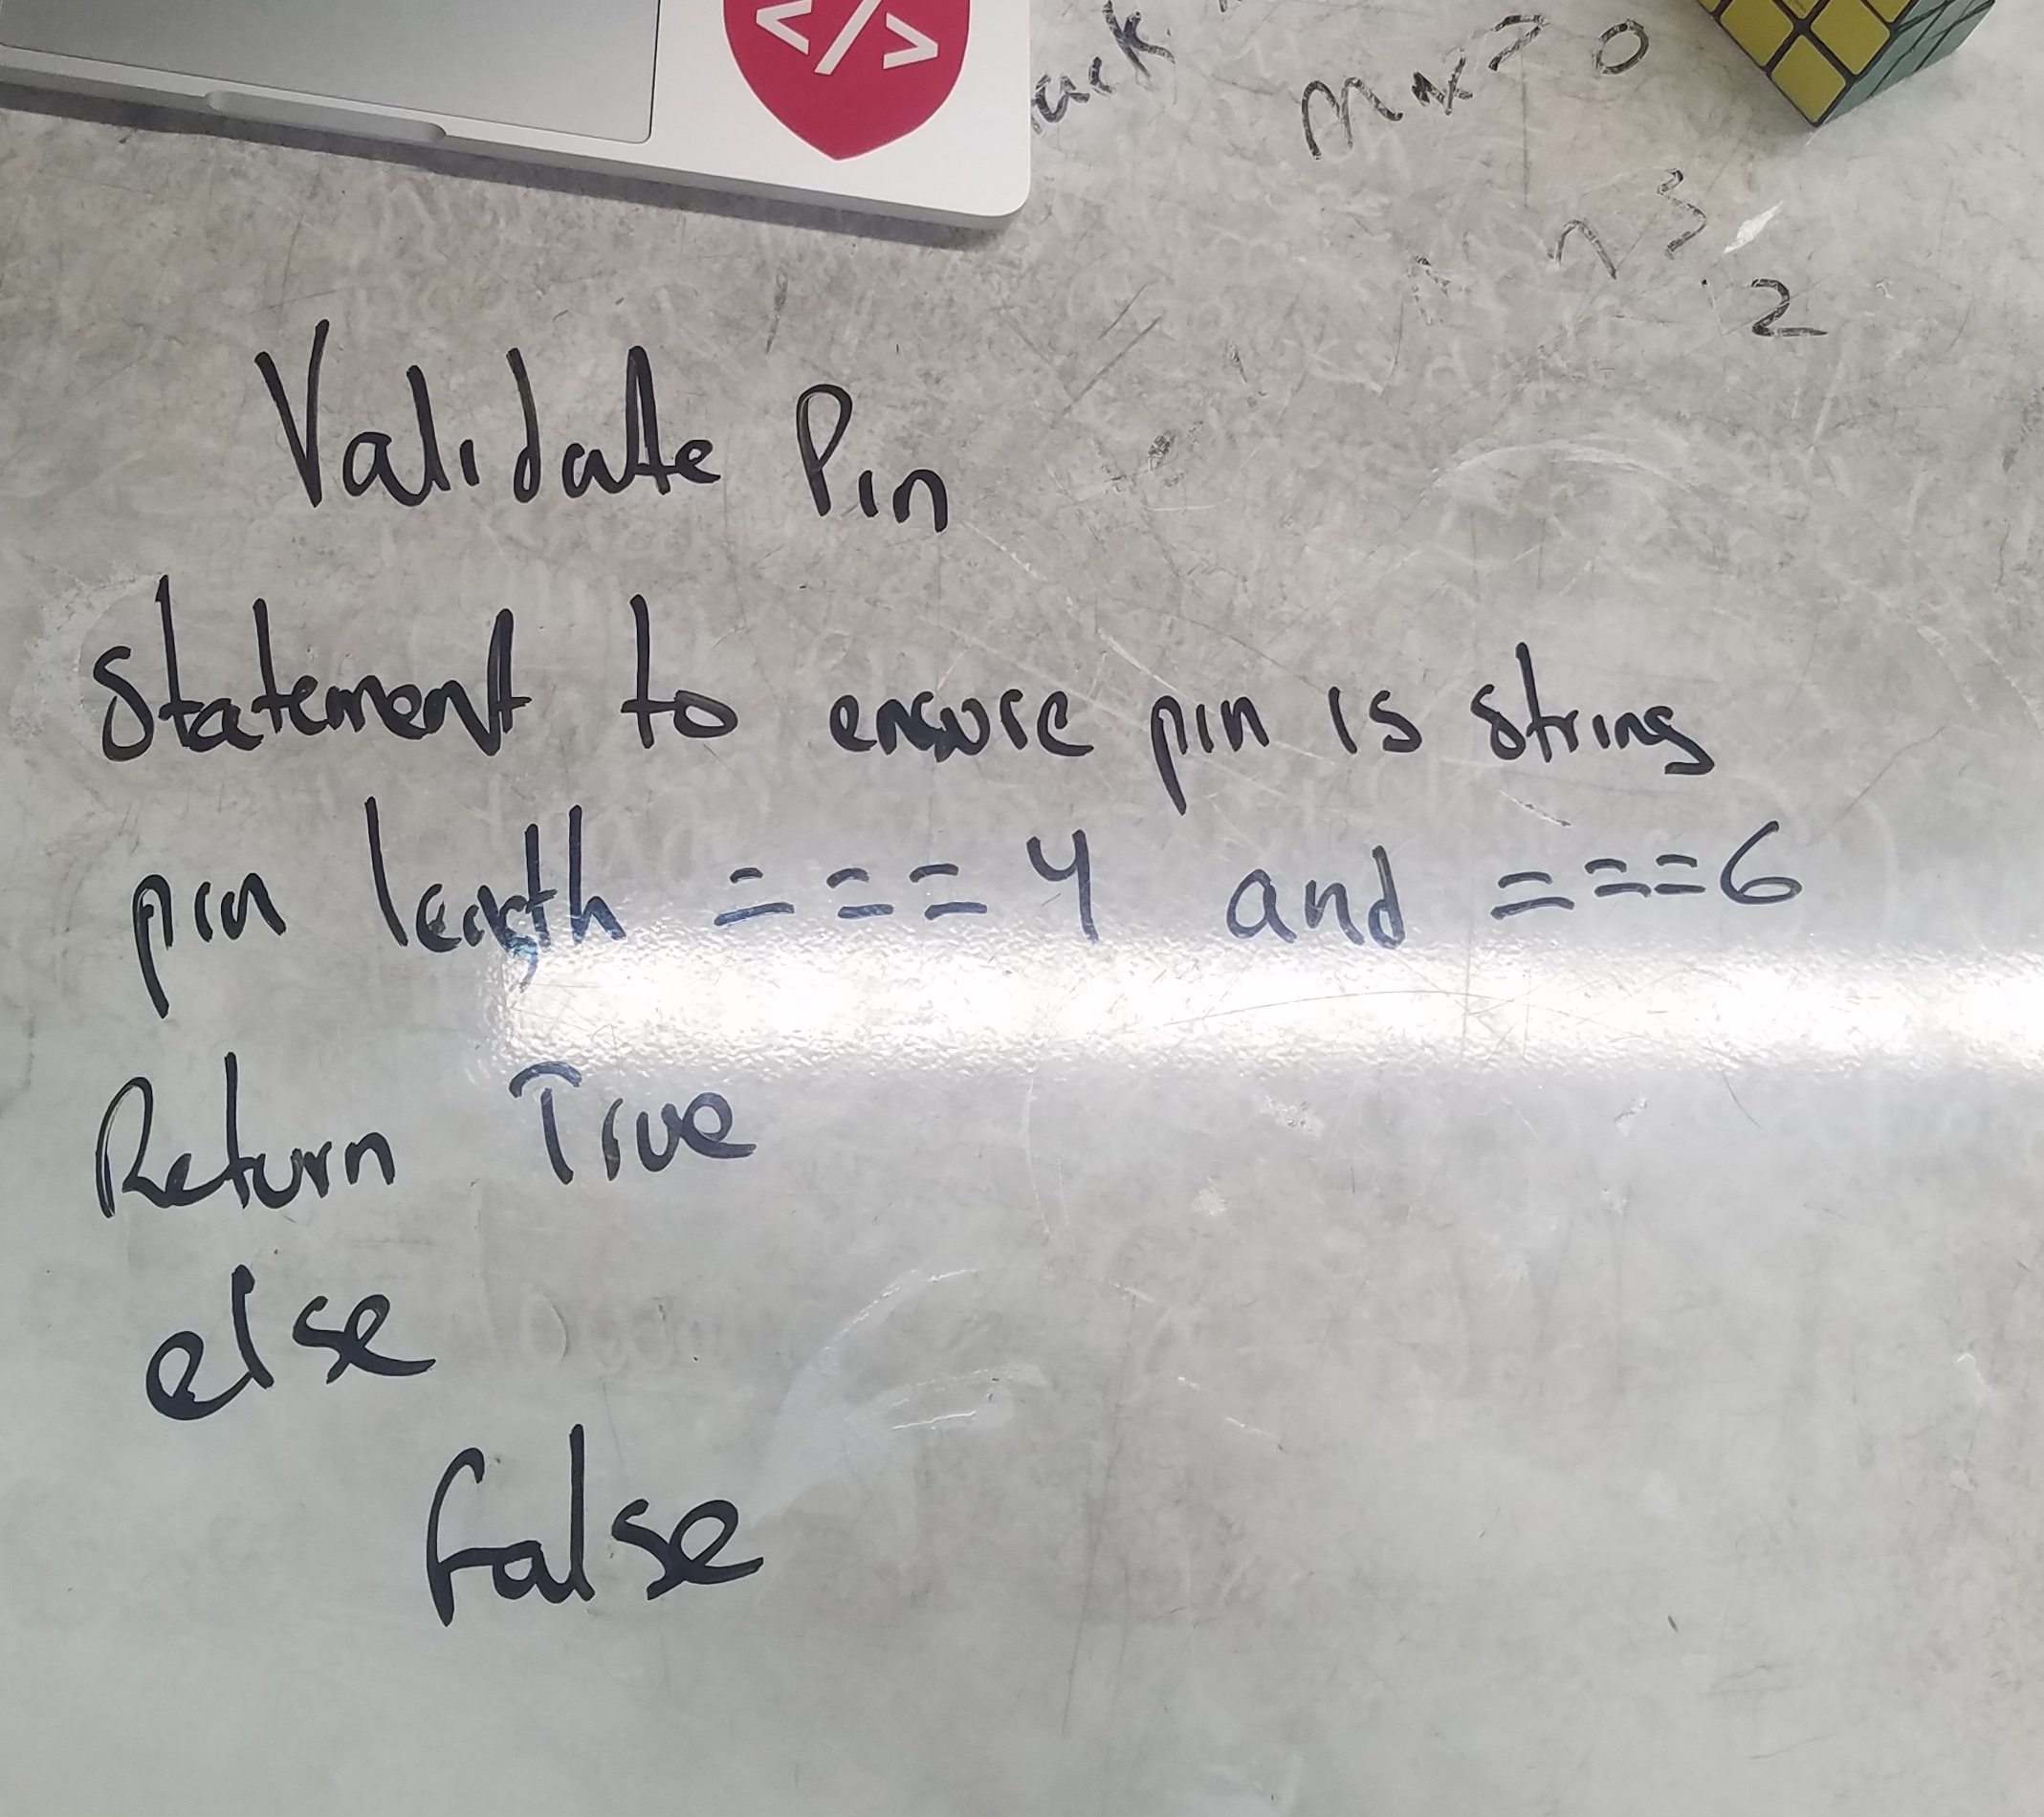 </>
ack
max 0
n 3
2
Validate Pin
Statement to ensure pin is string
pin length === 4 and === 6
Return True
else
false